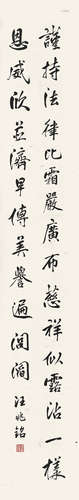 護持法律比霜嚴廣布慈祥似露沾一樣
恩威欣並濟早傳美譽遍閭閻
汪兆銘